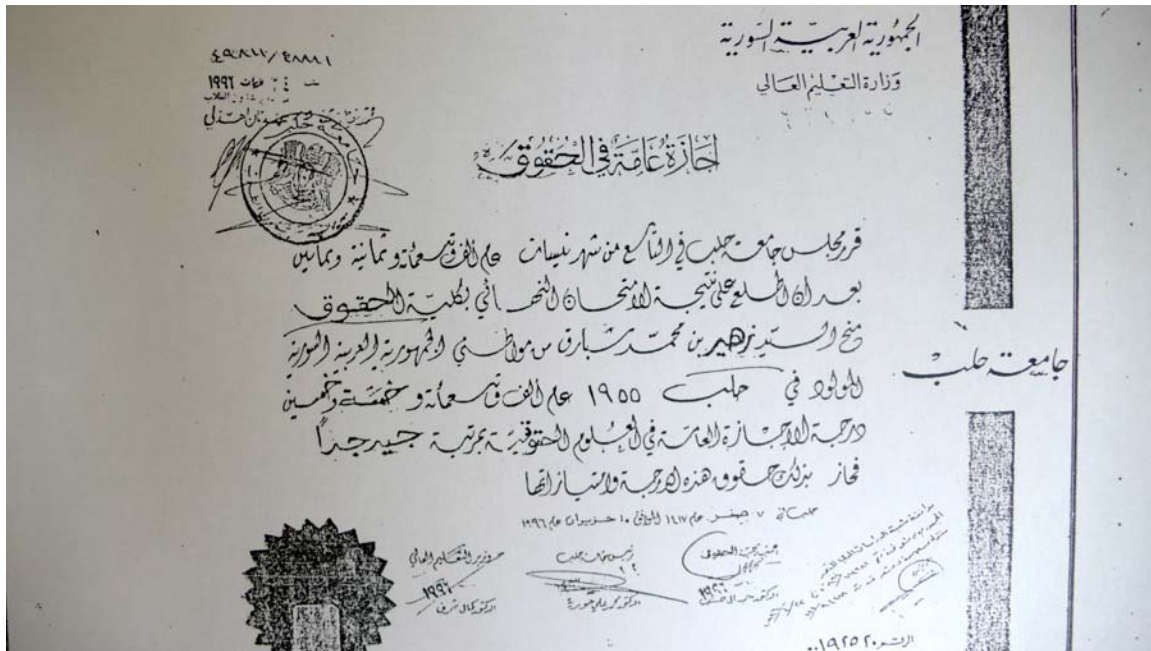 الجمهورية العربية السورية
وزارة التعليم العالي
٤٩٨١١/٤٨٨٨١
١٩٩٦
إجازة عامة في الحقوق
قرر مجلس جامعة حلب في التاسع من شهر نيسان عام ألف وتسعمائة وثمانية وثمانين
بعد ان اطلع على نتيجة الامتحان النهائي بكلية الحقوق
منح السيد زهير بن محمد شبارق من مواطني الجمهورية العربية السورية
المولود في حلب ١٩٥٥ عام ألف وتسعمائة و خمسة وخمسين
درجة الاجازة العامة في العلوم الحقوقية بمرتبة جيد جداً
فحاز بذلك حقوق هذه الدرجة وامتيازاتها
جامعة حلب
حلب في ٧ صفر عام ١٤١٧ الموافق ١٠ حزيران عام ١٩٩٦
عميد كلية الحقوق
رئيس جامعة حلب
وزير التعليم العالي
الدكتور محمد علي حورية
الدكتور كمال شرف